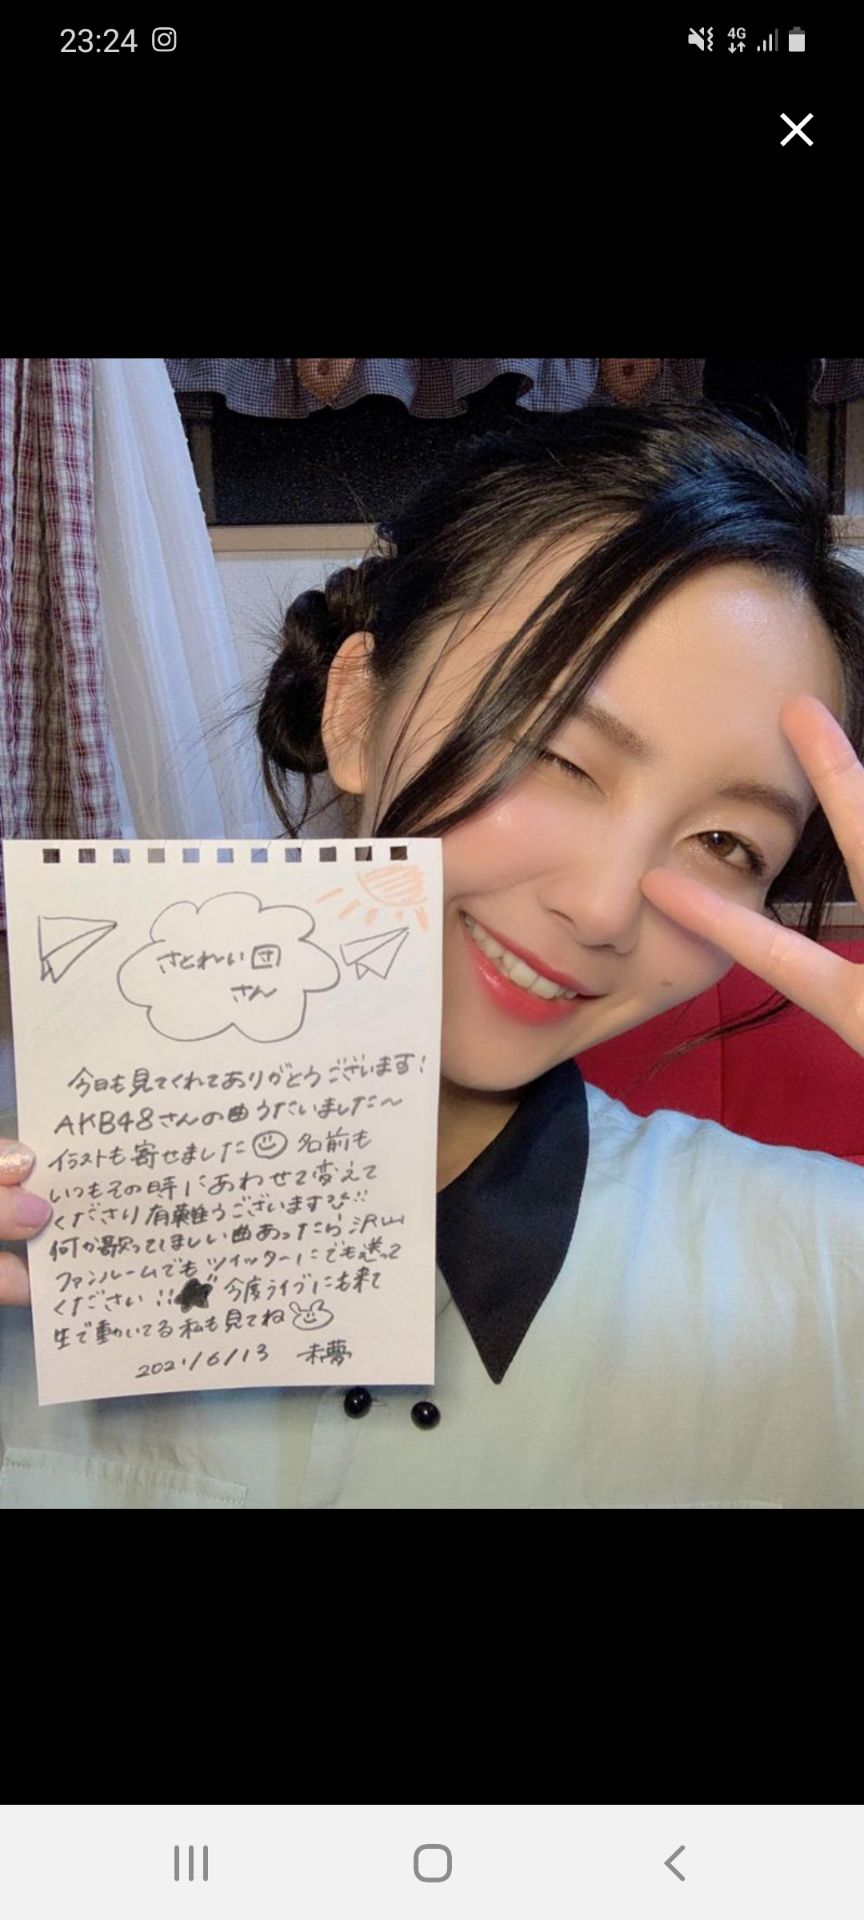 23:24
4G
さとれい団
さん
今日も見てくれてありがとうございます!
AKB48さんの曲うたいました〜
イラストも寄せました 名前も
いつもその時にあわせて変えて
くださり有難うございます!!
何か歌ってほしい曲あったら沢山
ファンルームでもツイッターにでも送って
ください!! 今度ライブにも来て
生で動いてる私も見てね
2021/6/13 未夢